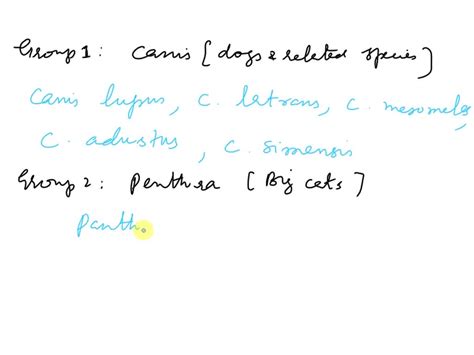 Group 1: Canis [dogs & related species]
Canis lupus, C. latrans, C. mesomelas,
C. adustus, C. simensis
Group 2: Penthera [Big cats]
Panth